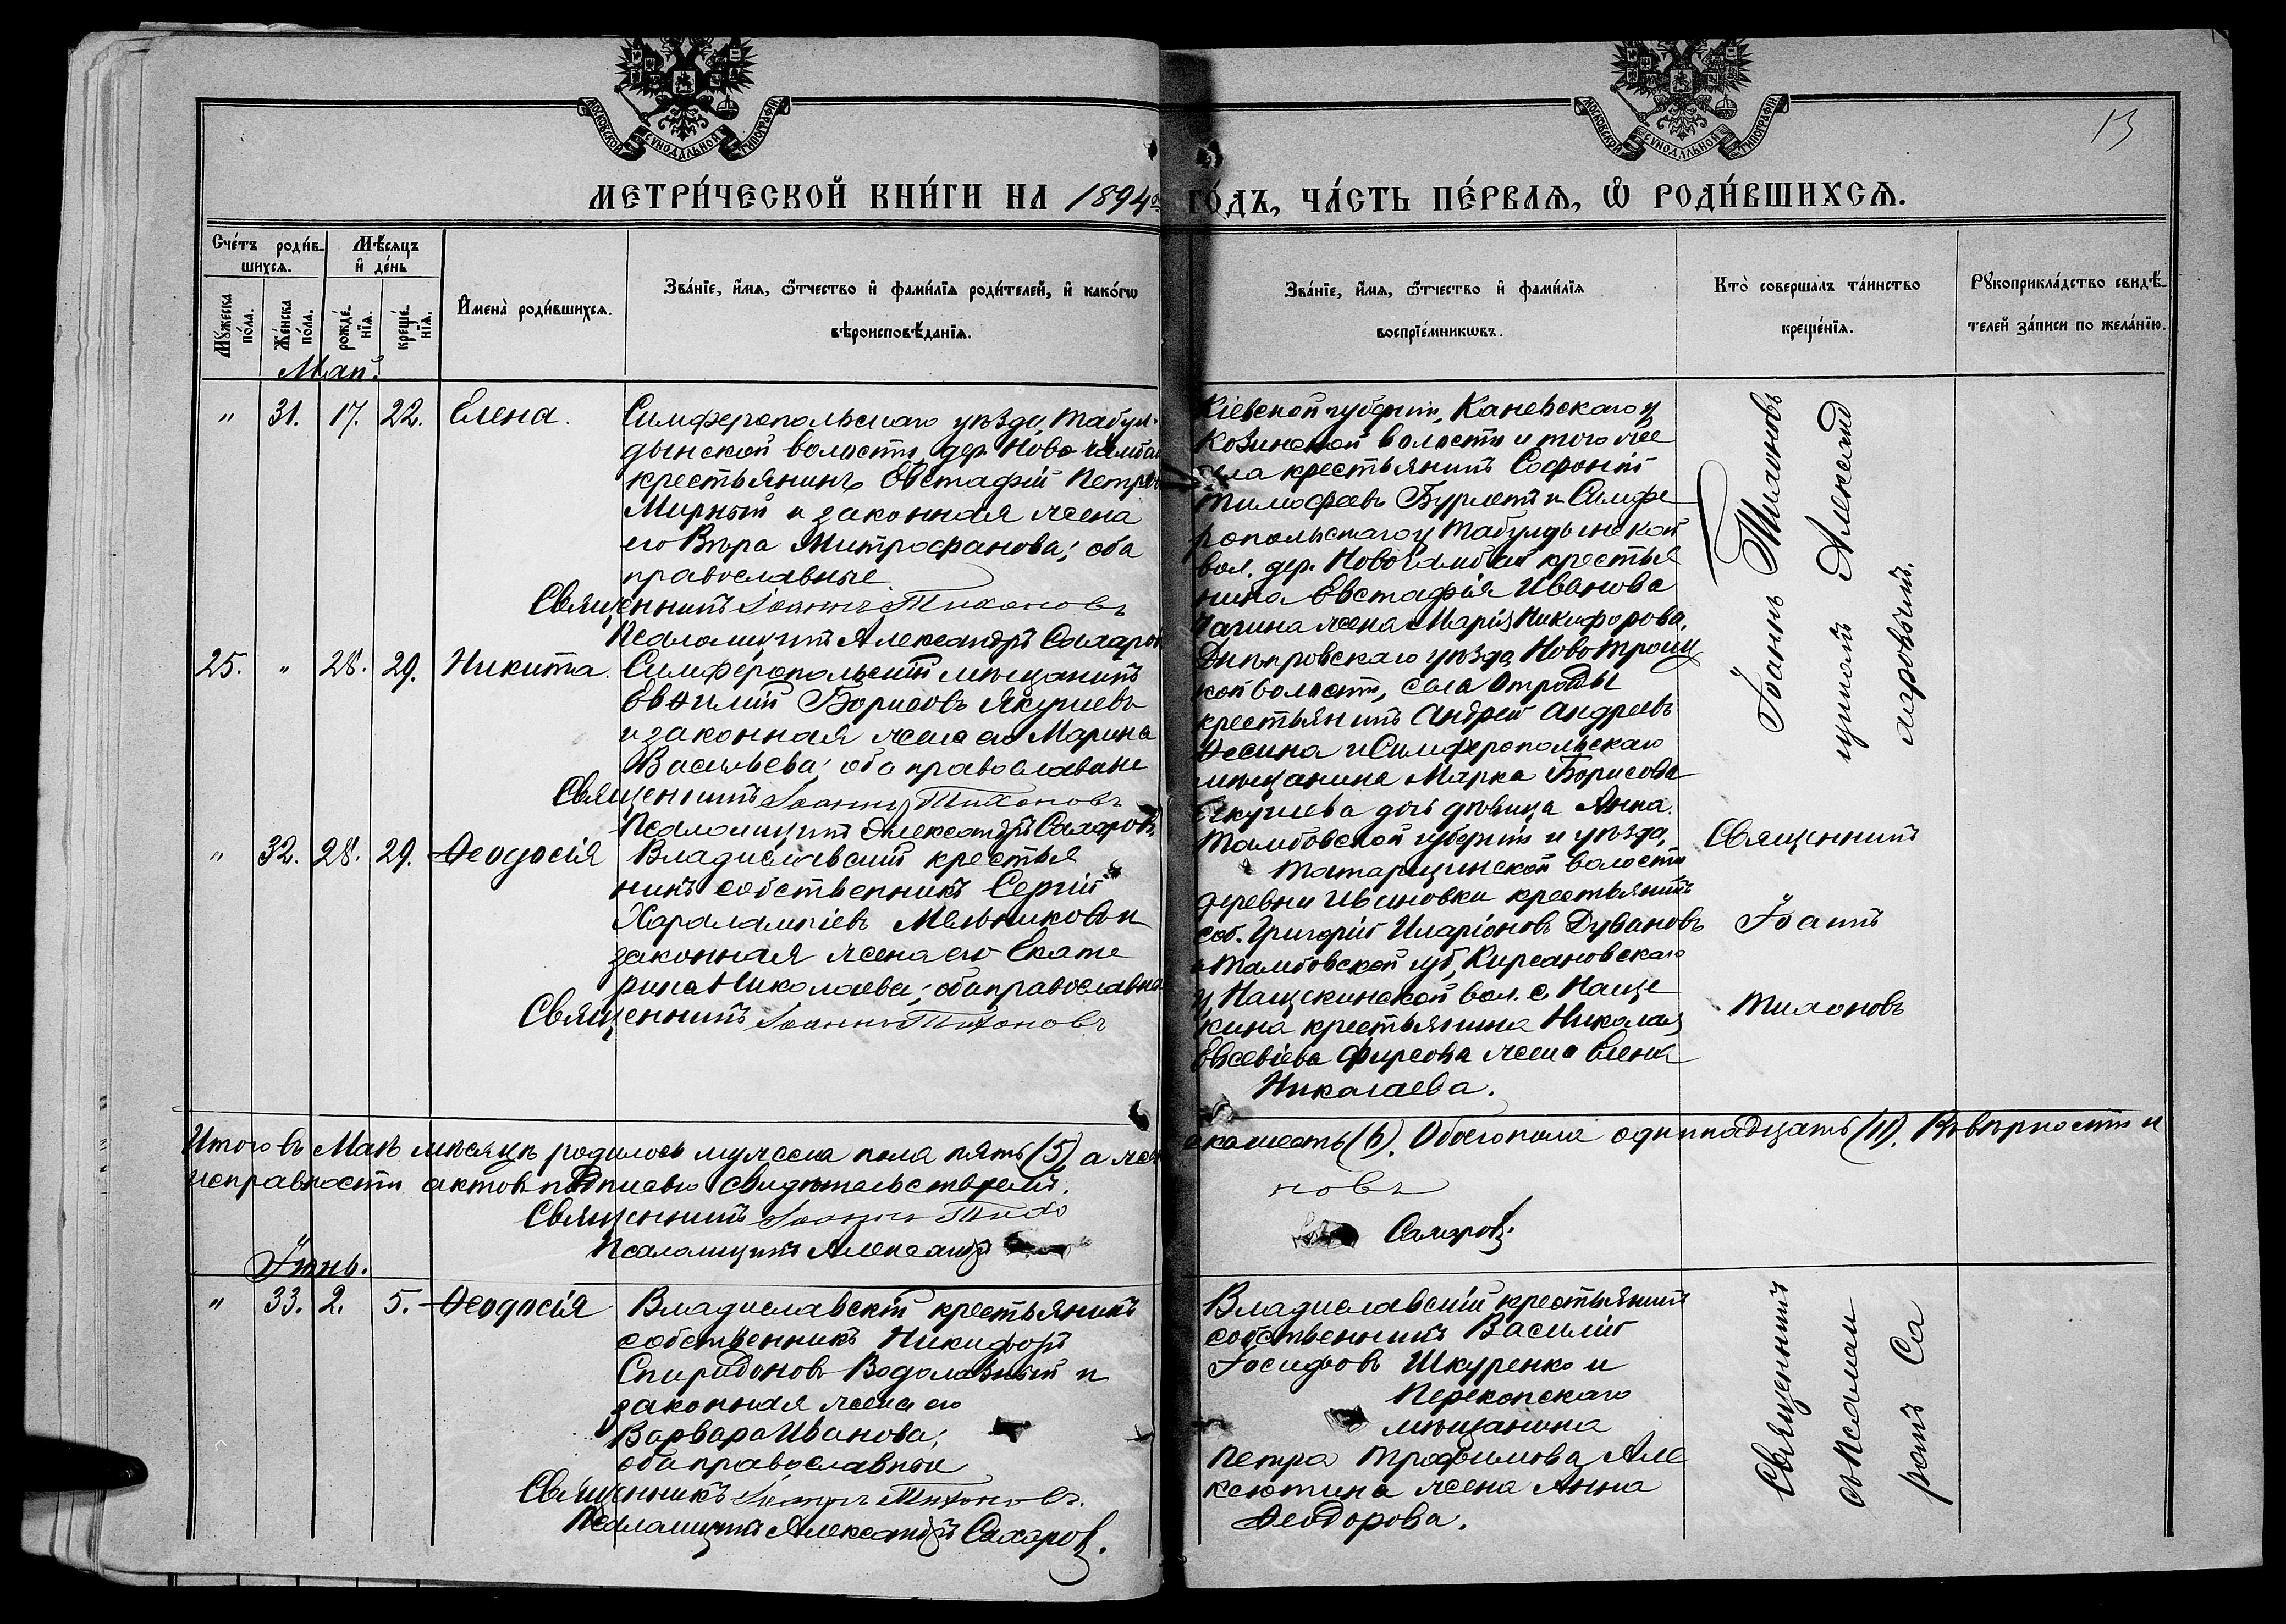 13
МОСКОВСКОЙ СУНОДАЛЬНОЙ ТИПОГРАФІИ
МОСКОВСКОЙ СУНОДАЛЬНОЙ ТИПОГРАФІИ
МЕТРИ́ЧЕСКОЙ КНИ́ГИ НА 1894й ГО́ДЪ, ЧА́СТЬ ПЕ́РВАѦ, Ѡ҆ РОДИ́ВШИХСѦ.
Сче́тъ роди́в-
шихсѧ.
Мѣ́сяцъ
и҆ де́нь
Мꙋ́жеска
по́ла.
Же́нска
по́ла.
рожде́-
нїѧ.
креще́-
нїѧ.
И҆мена̀ роди́вшихсѧ.
Зва́нїе, и҆́мѧ, ѻ҆́тчество и҆ фами́лїѧ роди́телей, и҆ како́гѡ
вѣроисповѣ́данїѧ.
Зва́нїе, и҆́мѧ, ѻ҆́тчество и҆ фами́лїѧ
воспрїе́мникѡвъ.
Кто̀ соверша́лъ та́инство
креще́нїѧ.
Рꙋкоприкла́дство свидѣ́-
телей за́писи по жела́нїю.
Май.
" 31. 17. 22. Елена.
Симферопольскаго уѣзда, Табул-
дынской волости, дер. Ново Чамбай
крестьянинъ Евстафій Петровъ
Мирный и законная жена
его Вѣра Митрофанова; оба
православные
Священникъ Іоаннъ Тихоновъ
Псаломщикъ Александръ Сахаровъ
Кіевской губерніи, Каневскаго у
Козинской волости и того же
села крестьянинъ Софоній
Тимофеевъ Бурлетъ и Симфе
ропольскаго у Табулдынской
вол. дер. Ново Чамбай крестья
нина Евстафія Иванова
Чагина жена Марія Никифорова.
Іоаннъ Тихоновъ
щикомъ Александ
харовымъ.
25. " 28. 29. Никита.
Симферопольскій мѣщанинъ
Евѳимій Борисовъ Якушевъ
и законная жена его Марина
Васильева; оба православные
Священникъ Іоаннъ Тихоновъ
Псаломщикъ Александръ Сахаровъ
Днѣпровскаго уѣзда, Ново Троиц
кой волости, села Отрады
крестьянинъ Андрей Андреевъ
Ѳесина и Симферопольскаго
мѣщанина Марка Борисова
Якушева дочь дѣвица Анна.
" 32. 28. 29. Ѳеодосія
Владиславскій крестья
нинъ собственникъ Сергій
Харалампіевъ Мельниковъ и
законная жена его Екате
рина Николаева; оба православные
Священникъ Іоаннъ Тихоновъ
Тамбовской губерніи и уѣзда,
Татарщинской волости
деревни Ивановки крестьянинъ
соб. Григорій Иларіоновъ Дувановъ
и Тамбовской губ, Кирсановскаго
у Нащекинской вол. с. Наще
кина крестьянина Николая
Евсевіева Фирсова жена Елена
Николаева.
Священникъ
Іоаннъ
Тихоновъ
Итого въ Маѣ мѣсяцѣ родилось мужеска пола пять (5), а жен
ска шесть (6). Обоего пола одиннадцать (11). Въ вѣрности и
исправности актовъ подписью свидѣтельствуемъ.
Священникъ Іоаннъ Тихо
новъ
Псаломщикъ Александръ Сахаровъ.
Іюнь.
" 33. 2. 5. Ѳеодосія
Владиславскій крестьянинъ
собственникъ Никифоръ
Спиридоновъ Водолазный и
законная жена его
Варвара Иванова;
оба православные
Священникъ Іоаннъ Тихоновъ.
Псаломщикъ Александръ Сахаровъ.
Владиславскій крестьянинъ
собственникъ Василій
Іосифовъ Шкуренко и
Перекопскаго
мѣщанина
Петра Трофимова Але
ксютина жена Анна
Ѳеодорова.
Священникъ
съ Псалом
ромъ Са